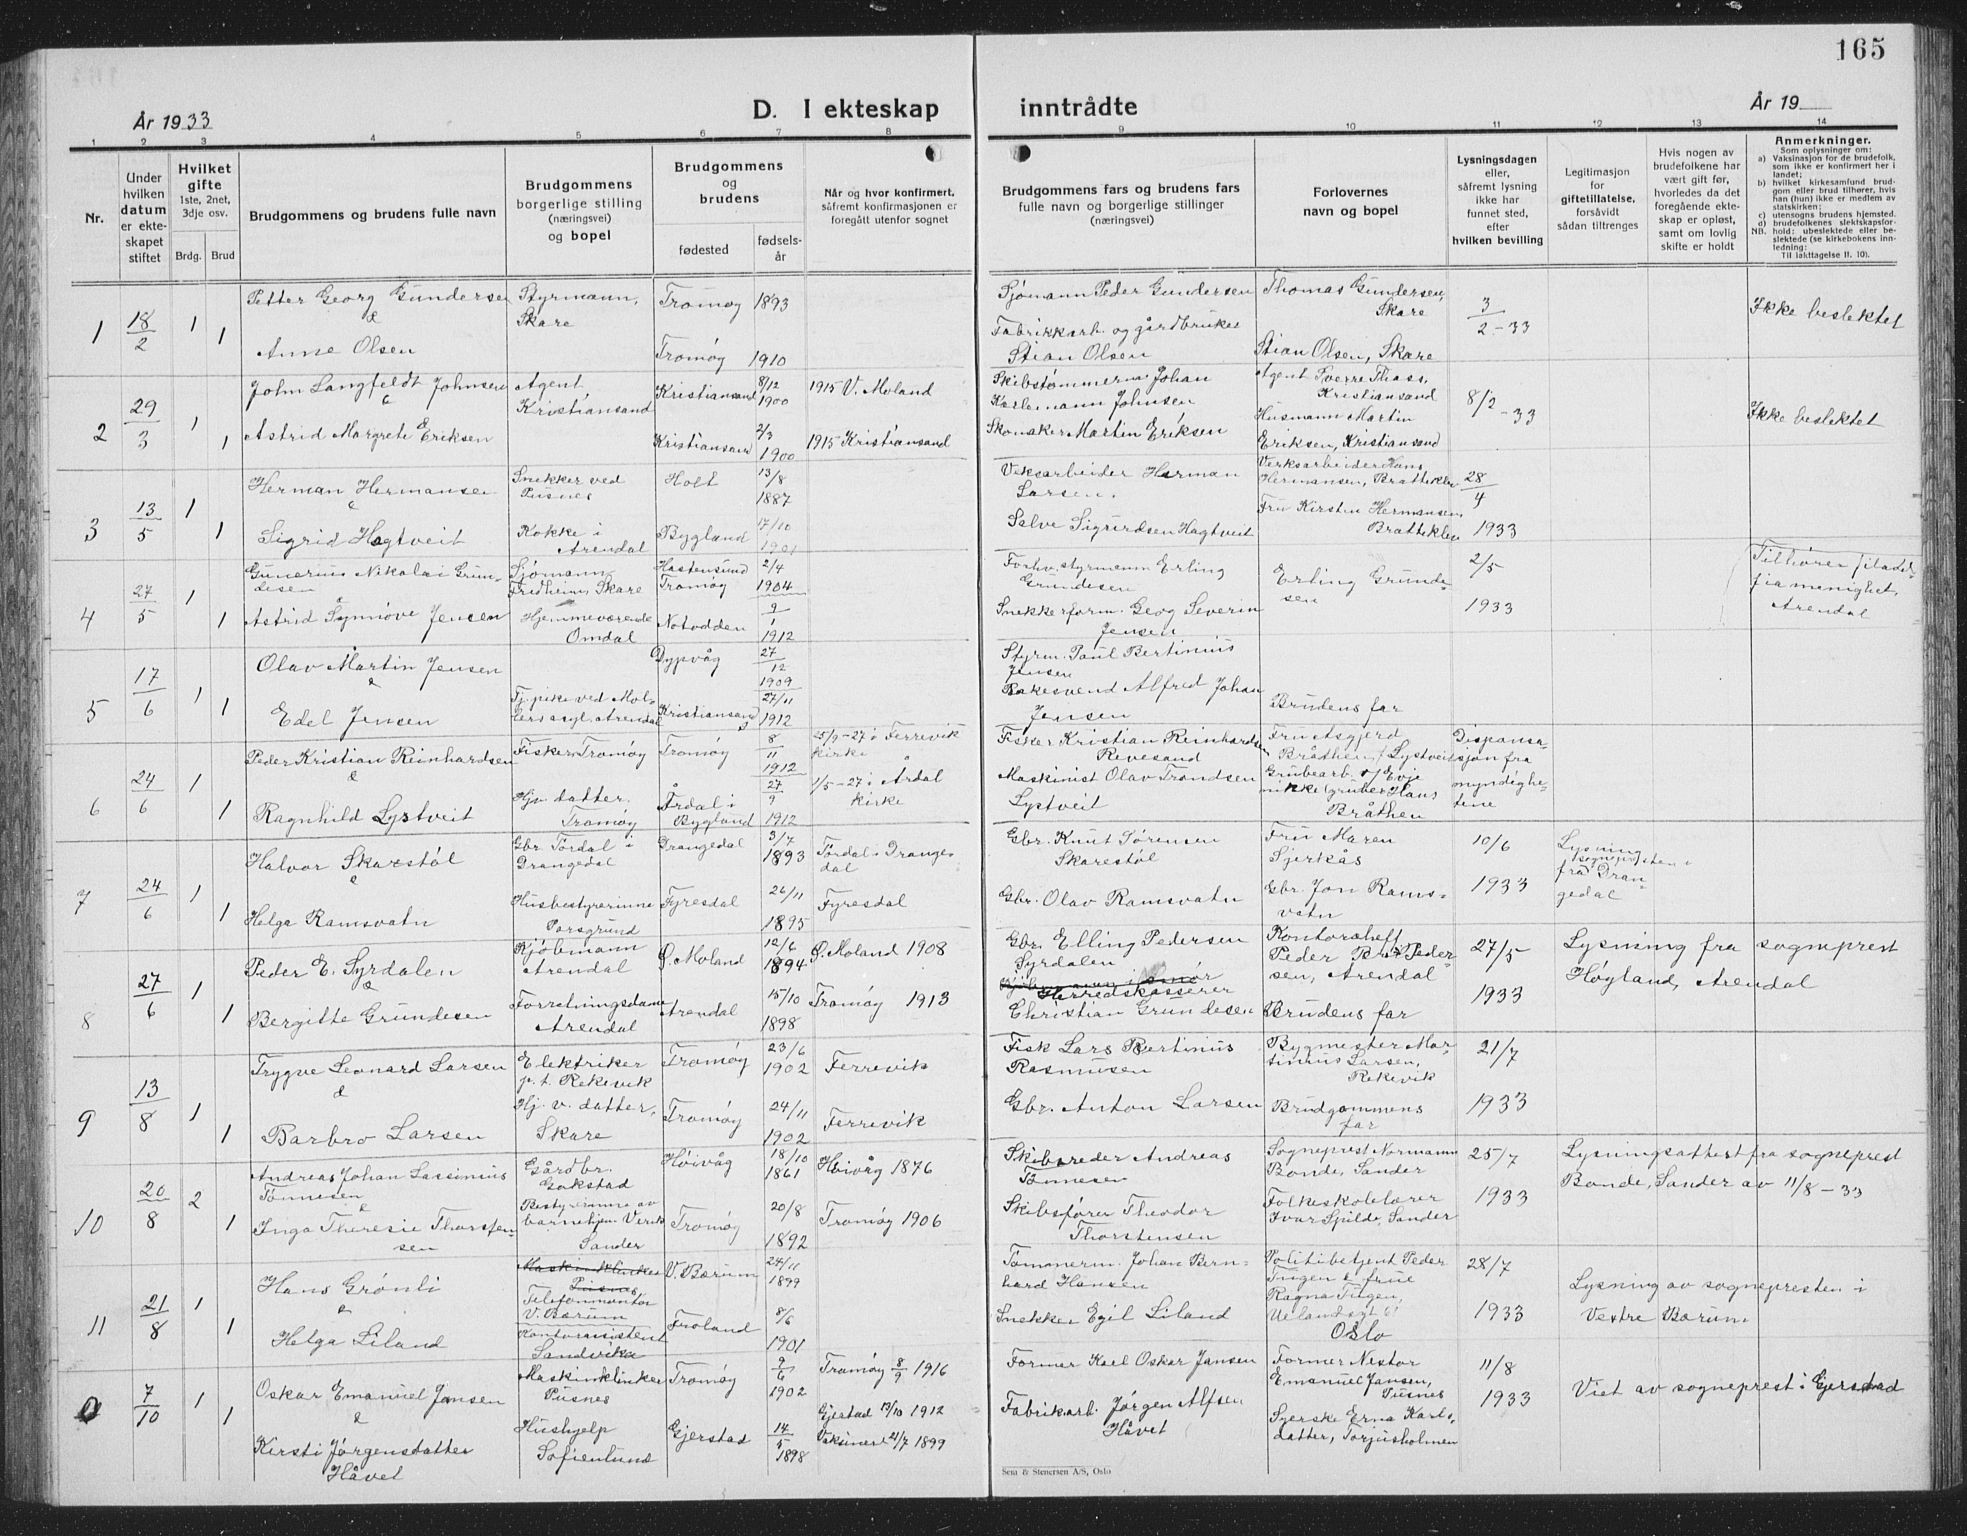 165
År 1933
D. I ekteskap inntrådte
År 19
1 2 3 4 5 6 7 8 9 10 11 12 13 14
Nr.
Under hvilken datum er ekteskapet stiftet
Hvilket gifte 1ste, 2net, 3dje osv.
Brdg. Brud
Brudgommens og brudens fulle navn
Brudgommens borgerlige stilling (næringsvei) og bopel
Brudgommens og brudens
fødested
fødselsår
Når og hvor konfirmert, såfremt konfirmasjonen er foregått utenfor sognet
Brudgommens fars og brudens fars fulle navn og borgerlige stillinger (næringsvei)
Forlovernes navn og bopel
Lysningsdagen eller, såfremt lysning ikke har funnet sted, efter hvilken bevilling
Legitimasjon for giftetillatelse, forsåvidt sådan tiltrenges
Hvis nogen av brudefolkene har vært gift før, hvorledes da det foregående ekteskap er opløst, samt om lovlig skifte er holdt
Anmerkninger.
Som oplysninger om:
a) Vaksinasjon for de brudefolk, som ikke er konfirmert her i landet;
b) hvilket kirkesamfund brudgom eller brud tilhører, hvis han (hun) ikke er medlem av statskirken;
c) utensogns brudens hjemsted.
d) brudefolkenes slektskapsforhold: ubeslektede eller beslektede (se kirkebokens innledning:
NB.
Til iakttagelse 11. 10).
1 18/2 1 1
Petter Georg Gundersen
&
Anne Olsen
Styrmann, Skare
Tromøy 1893
Tromøy 1910
Sjømann Peder Gundersen
Fabrikkarb. og gårdbruker Stian Olsen
Thomas Gundersen, Skare
Stian Olsen, Skare
3/2-33
Ikke beslektet
2 29/3 1 1
John Langfeldt Johnsen
&
Astrid Margrete Eriksen
Agent Kristiansand
Kristiansand 8/12 1900
Kristiansand 2/3 1900
1915 V. Moland
1915 Kristiansand
Skibstømmermann Johan Karlemann Johnsen
Skomaker Martin Eriksen
Agent Sverre Thass, Kristiansand
Husmann Martin Eriksen, Kristiansand
8/2-33
Ikke beslektet
3 13/5 1 1
Herman Hermansen
&
Sigrid Hagtveit
Snekker ved Pusnes
Kokke i Arendal
Holt 13/8 1887
Bygland 17/10 1901
Verksarbeider Herman Larsen.
Salve Sigurdsen Hagtveit
Verksarbeider Hans Hermansen, Brattekleiv
Fru Kirsten Hermansen, Bratteklev
28/4 1933
4 27/5 1 1
Gunerius Nikolai Grundesen
&
Astrid Synnøve Jensen
Sjømann Fredheim, Skare
Hjemmeværende Omdal
Hastensund Tromøy 2/4 1904
Notodden 9/1 1912
Forhv. styrmenn Erling Grundesen
Snekkerform. Georg Severin Jensen
Erling Grundesen
2/5 1933
Tilhører filadelfiamenighet, Arendal
5 17/6 1 1
Olav Martin Jensen
&
Edel Jensen
Tj. pike ved Mollers asyl. Arendal
Dypvåg 27/12 1909
Kristiansand S 27/11 1912
Styrm. Paul Bertinius Jensen
Bakesvend Alfred Johan Jensen
Brudens far
6 24/6 1 1
Peder Kristian Reinhardsen
&
Ragnhild Lystveit
Fisker Tromøy
Hjv. datter. Tromøy
Tromøy 8/11 1912
Årdal i Bygland 27/9 1912
25/9-27 i Færevik kirke
1/5-27 i Årdal kirke
Fisker Kristian Reinhardsen Revesand
Maskinist Olav Trondsen Lystveit
Fru Asgjerd Bråthen f. Lystveit
Grubearb. v/ Evje nikkelgruber Hans Bråthen
Dispensasjon fra myndighetene
7 24/6 1 1
Halvor Skarestøl
&
Helga Ramsvatn
Gbr. Tørdal i Drangedal
Husbestyrerinne Porsgrund
Drangedal 3/7 1893
Fyresdal 26/11 1895
Tørdal i Drangedal
Fyresdal
Gbr. Knut Sørensen Skarestøl
Gbr. Olav Ramsvatn
Fru Maren Sjerkås
Gbr. Jon Ramsvatn
10/6 1933
Lysning fra sognepresten i Drangedal
8 27/6 1 1
Peder E. Syrdalen
&
Bergitte Grundesen
Kjøbmann Arendal
Forretningsdame Arendal
Ø. Moland 12/6 1894
Arendal 15/10 1898
Ø. Moland 1908
Tromøy 1913
Gbr. Elling Pedersen Syrdalen
Herredskasserer Christian Grundesen
Kontorsheff Peder Br. Pedersen, Arendal
Brudens far
27/5 1933
Lysning fra sogneprest Høyland, Arendal
9 13/8 1 1
Trygve Leonard Larsen
&
Barbro Larsen
Elektriker p.t. Rekevik
Hj. v. datter, Skare
Tromøy 23/6 1902
Tromøy 24/11 1902
Færevik
Færevik
Fisk Lars Bertinius Rasmusen
Gbr. Anton Larsen
Bygmester Martinius Larsen, Rekevik
Brudgommens far
21/7 1933
10 20/8 2 1
Andreas Johan Lassinius Tønnesen
&
Inga Theresie Thorstensen
Gårdbr. Gokstad
Bestyrerinne av barnehjem. Verik Sander
Høivåg 18/10 1861
Tromøy 20/8 1892
Høivåg 1876
Tromøy 1906
Skibsreder Andreas Tønnesen
Skibsfører Theodor Thorstensen
Sogneprest Normann Bonde, Sander
Folkeskolelærer Ivar Spilde, Sander
25/7 1933
Lysningsattest fra sogneprest Bonde, Sander av 11/8-33
11 21/8 1 1
Hans Grønli
&
Helga Liland
Maskinklinker Pusnes
Telefonmontør V. Bærum
Kontorassistent Sandvika
V. Bærum 24/11 1899
Froland 8/6 1901
Tømmerm. Johan Bernhard Hansen
Snekker Egil Liland
Politibetjent Peder Tugen & frue Ragna Tugen, Uelandsgt 61 Oslo
28/7 1933
Lysning av sognepresten i Vestre Bærum
7/10 1 1
Oskar Emanuel Jansen
&
Kirsti Jørgensdatter Håvet
Maskinklinker Pusnes
Hushjelp Sofienlund
Tromøy 9/6 1902
Gjerstad 14/5 1898
Tromøy 8/9 1916
Gjerstad 13/10 1912
Vaksinert 21/7 1899
Former Karl Oskar Jansen
Fabrikarb. Jørgen Alfsen Håvet
Former Nestor Emanuel Jansen, Pusnes
Syerske Erna Karlsdatter, Torjusholmen
11/8 1933
Viet av sogneprest i Gjerstad
Sem & Stenersen A/S, Oslo